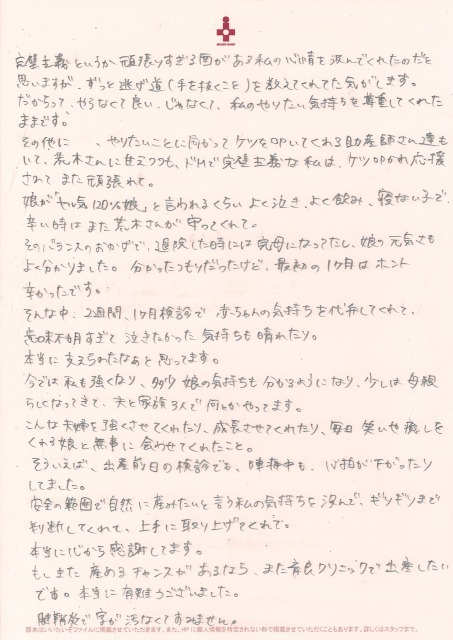 完璧主義というか頑張りすぎる面がある私の心情を汲んでくれたのだと
思いますが、ずっと逃げ道(手を抜くこと)を教えてくれてた気がします。
だからって、やらなくて良い、じゃなくて、私のやりたい気持ちを尊重してくれた
ままです。
その他に 、やりたいことに向かってケツを叩いてくれる助産師さん達も
いて、荒木さんに甘えつつも、ドMで完璧主義な私は、ケツ叩かれ応援
されて また頑張れた。
娘が「ヤル気120%娘」と言われるくらい よく泣き、よく飲み、寝ない子で、
辛い時はまた荒木さんが守ってくれて。
そのバランスのおかげで、退院した時には完母になってたし、娘の元気さも
よく分かりました。分かったつもりだったけど、最初の1ヶ月はホント
辛かったです。
そんな中、2週間、1ヶ月検診で 赤ちゃんの気持ちを代弁してくれて、
意味不明すぎて 泣きたかった 気持ちも晴れたり。
本当に支えられたなあと思ってます。
今では私も強くなり、多少 娘の気持ちも分かるようになり、少しは母親
らしくなってきて、夫と家族3人で何とかやってます。
こんな夫婦を強くさせてくれたり、成長させてくれたり、毎日 笑いや癒しを
くれる娘と無事に会わせてくれたこと。
そういえば、出産前日の検診でも、陣痛中も、心拍が下がったり
してました。
安全の範囲で自然に産みたいと言う私の気持ちを汲んで、ギリギリまで
判断してくれて、上手に取り上げてくれて。
本当に心から感謝してます。
もしまた産めるチャンスがあるなら、また育良クリニックで出産したい
です。本当に有難うございました。
腱鞘炎で字が汚なくてすみません。
原本はいいたいぞファイルに掲載させていただきます。また、HPに個人情報を特定されない形で掲載させていただくこともあります。詳しくはスタッフまで。